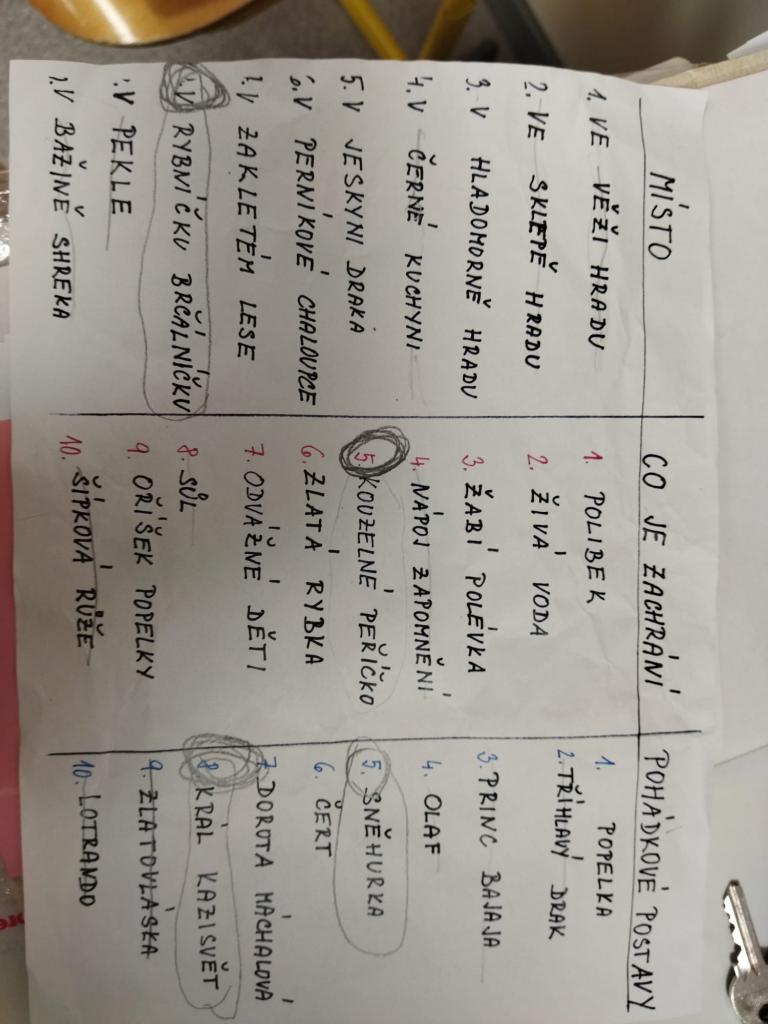 MÍSTO
1. VE VĚŽI HRADU
2. VE SKLEPĚ HRADU
3. V HLADOMORNĚ HRADU
4. V ČERNÉ KUCHYNI
5. V JESKYNI DRAKA
6. V PERNÍKOVÉ CHALOUPCE
V ZAKLETÉM LESE
V RYBNÍČKU BRČÁLNÍČKU
V PEKLE
V BAŽINĚ SHREKA
CO JE ZACHRÁNÍ
1. POLIBEK
2. ŽIVÁ VODA
3. ŽABÍ POLÉVKA
4. NÁPOJ ZAPOMNĚNÍ
5. KOUZELNÉ PEŘÍČKO
6. ZLATÁ RYBKA
7. ODVÁŽNÉ DĚTI
8. SŮL
9. OŘÍŠEK POPELKY
10. ŠÍPKOVÁ RŮŽE
POHÁDKOVÉ POSTAVY
1. POPELKA
2. TŘÍHLAVÝ DRAK
3. PRINC BAJAJA
4. OLAF
5. SNĚHURKA
6. ČERT
7. DOROTA MÁCHALOVÁ
8. KRÁL KAZISVĚT
9. ZLATOVLÁSKA
10. LOTRANDO